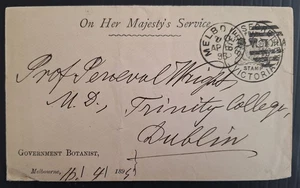 On Her Majesty's Service.
MELBOURNE
STAMP
VICTORIA
Prof Perceval Wright
M.D., Trinity College,
Dublin
GOVERNMENT BOTANIST,
Melbourne, 189